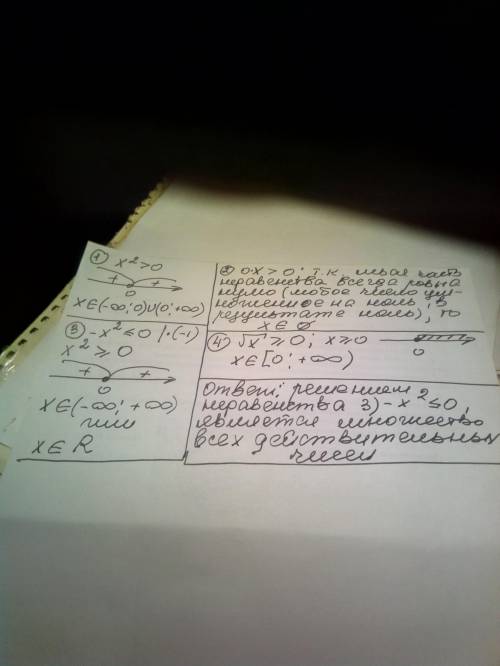 ① x² > 0
+ +
0
x∈(-∞; 0)∪(0; +∞)
② 0·x > 0; т.к. левая часть
неравенства всегда равна
нулю (любое число ум-
ноженное на ноль, в
результате ноль), то
x ∈ ∅
③ -x² ≤ 0 | ·(-1)
x² ≥ 0
+ +
0
x∈(-∞; +∞)
или
x∈R
④ √x ≥ 0; x ≥ 0
0
x∈[0; +∞)
Ответ: решением
неравенства 3) -x² ≤ 0,
является множество
всех действительных
чисел